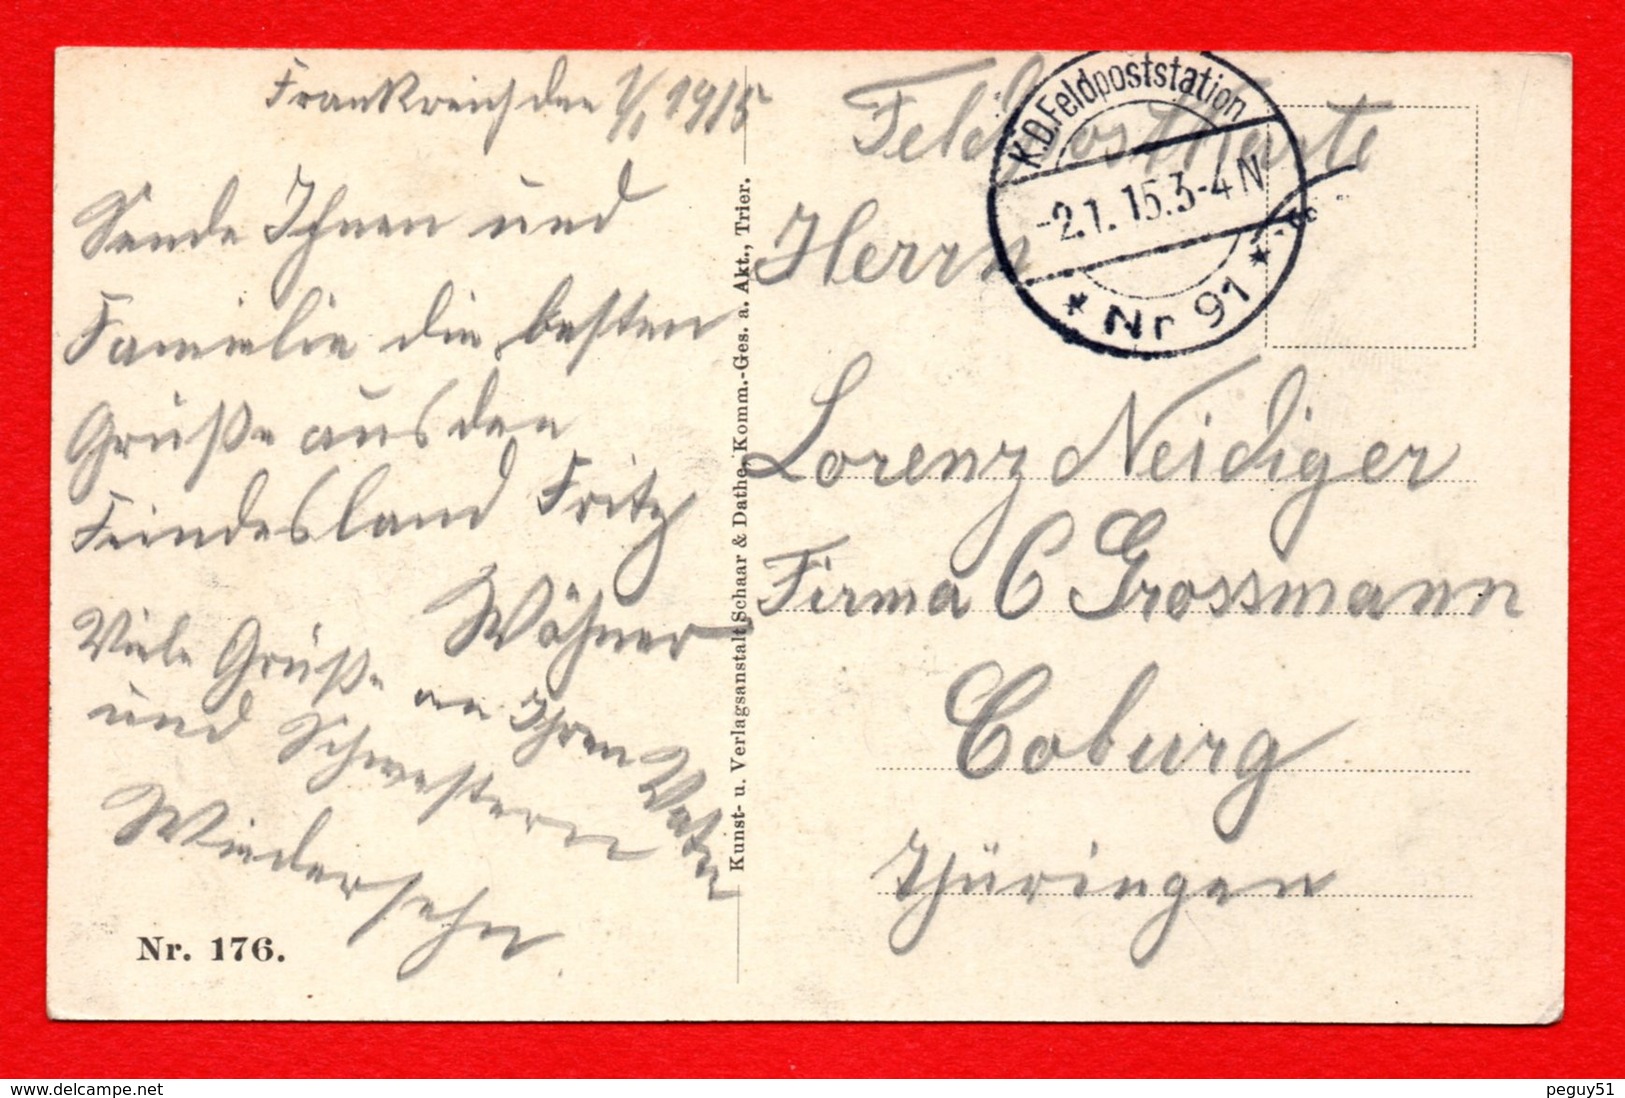 Frankreich den 1/1 1915
Sende Ihnen und
Familie die besten
Grüße aus den
Feindesland Fritz
Wöhner
Viele Grüße an Ihren Vater
und Schwestern
Wiedersehn
Nr. 176.
Kunst- u. Verlagsanstalt Schaar & Dathe, Komm.-Ges. a. Akt., Trier.
Feldpostkarte
K.D. Feldpoststation
-2.1.15.3-4N
* Nr 91 *
Herrn
Lorenz Neidiger
Firma C Grossmann
Coburg
Thüringen
delcampe.net
peguy51